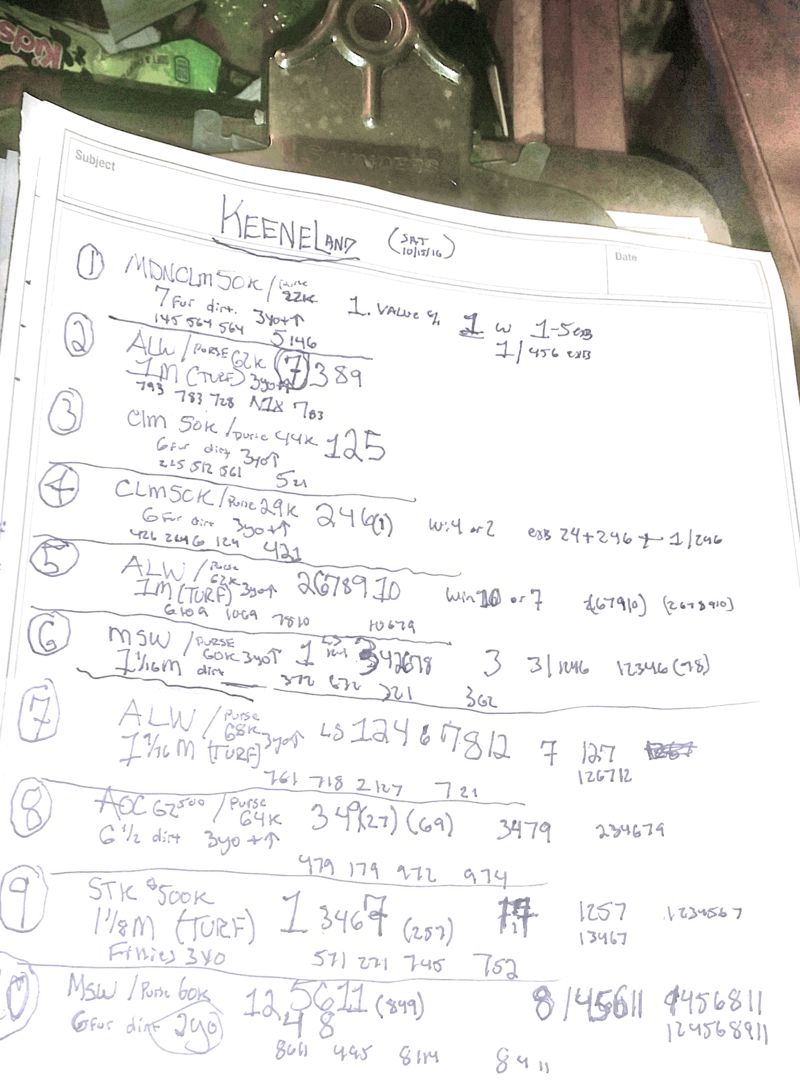 Kids
Subject
Date
KEENELAND (SAT 10/15/16)
① MDNCLM 50K / purse 22K
7 Fur dirt. 3yo+↑ 1. VALUE 1 w 1-5 exB
145 564 564 5146 1/456 exB
② ALW / PURSE 62K 7 389
1M (TURF) 3yo+↑
793 783 728 N1X 783
③ Clm 50K / purse 44K 125
6 Fur dirt 3yo↑
215 512 561 521
④ CLM 50K / Purse 29K 246(1) Win 4 or 2 exB 24+246 + 1/246
6 Fur dirt 3yo+↑
426 2646 124 421
⑤ ALW / Purse 62K 2678910 Win 10 or 7 (67910) (2678910)
1M (TURF) 3yo↑
6109 1069 7810 10679
⑥ MSW / PURSE 60K 3yo↑ 1 342678 3 3/1246 12346(78)
1 1/16 M dirt
372 632 321 362
⑦ ALW / Purse 68K 3yo↑ LS 12467812 7 127
1 1/16 M (TURF) 126712
761 718 2127 721
⑧ AOC 62500 / Purse 64K 349(27)(69) 3479 234679
6 1/2 dirt 3yo+↑
479 179 972 974
⑨ STK $500K 1 3467 (257) 1257 1234567
1 1/8 M (TURF) 13467
Fillies 3YO 571 271 745 752
10 MSW / Purse 60K 12 5611 (849) 8/45611 9456811
6 Fur dirt 2yo 48 124568911
8611 495 8114 8411